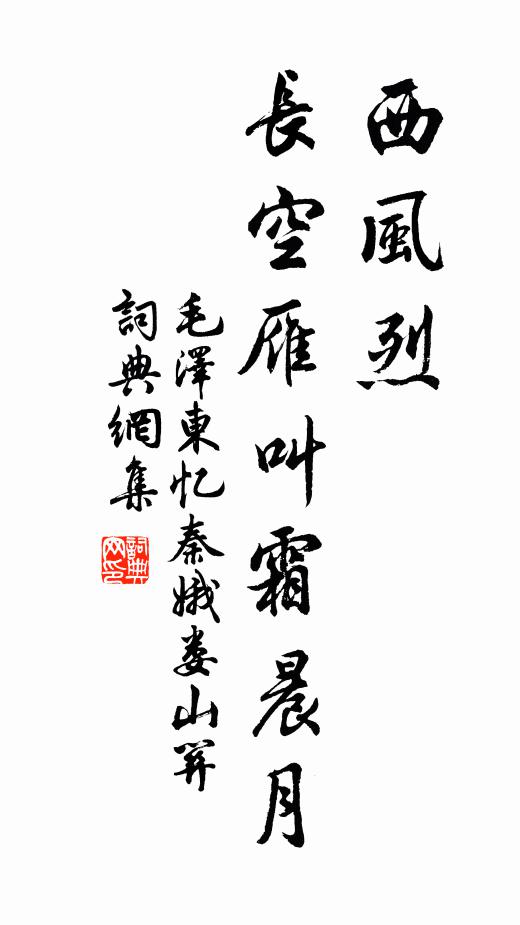 西風烈
長空雁叫霜晨月
毛澤東忆秦娥娄山關
詞典網集
詞典网印